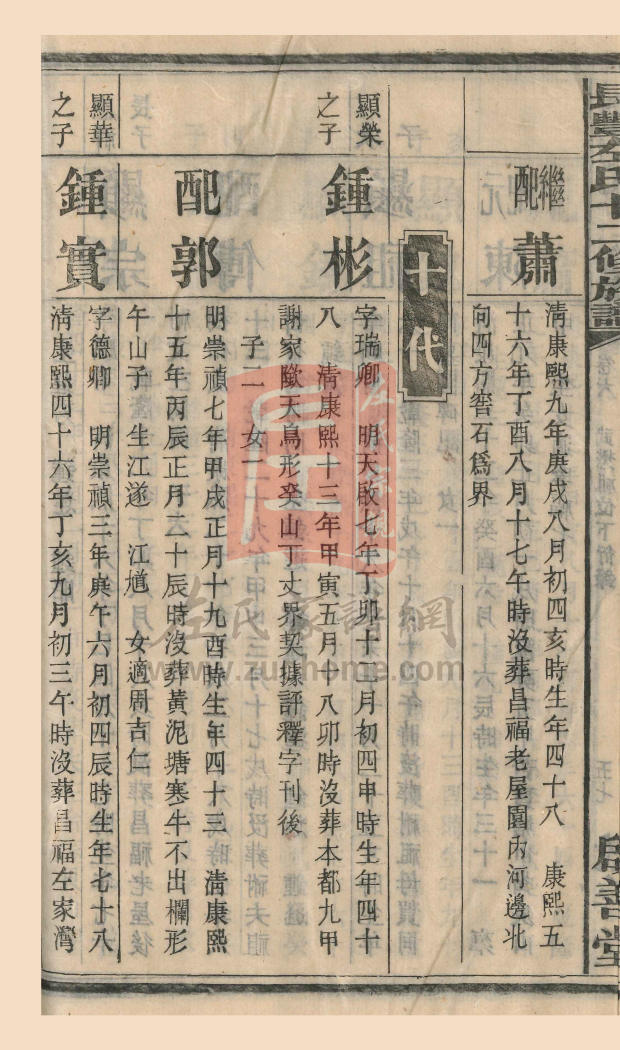 長豐左氏十二修族譜
卷六
五七
啟善堂
繼配蕭
淸康熙九年庚戌八月初四亥時生年四十八 康熙五
十六年丁酉八月十七午時沒葬昌福老屋園內河邊北
向四方窖石爲界
十代
顯榮之子
鍾彬
字瑞卿 明天啟七年丁卯十二月初四申時生年四十
八 淸康熙十三年甲寅五月十八卯時沒葬本都九甲
謝家歐天鳥形癸山丁丈界契據評釋字刊後
子二 女一
配郭
明崇禎七年甲戌正月十九酉時生年四十三 淸康熙
十五年丙辰正月二十辰時沒葬黃泥塘寒牛不出欄形
午山子 生江遂 江馗 女適周吉仁
顯華之子
鍾實
字德卿 明崇禎三年庚午六月初四辰時生年七十八
淸康熙四十六年丁亥九月初三午時沒葬昌福左家灣
左氏家譜網